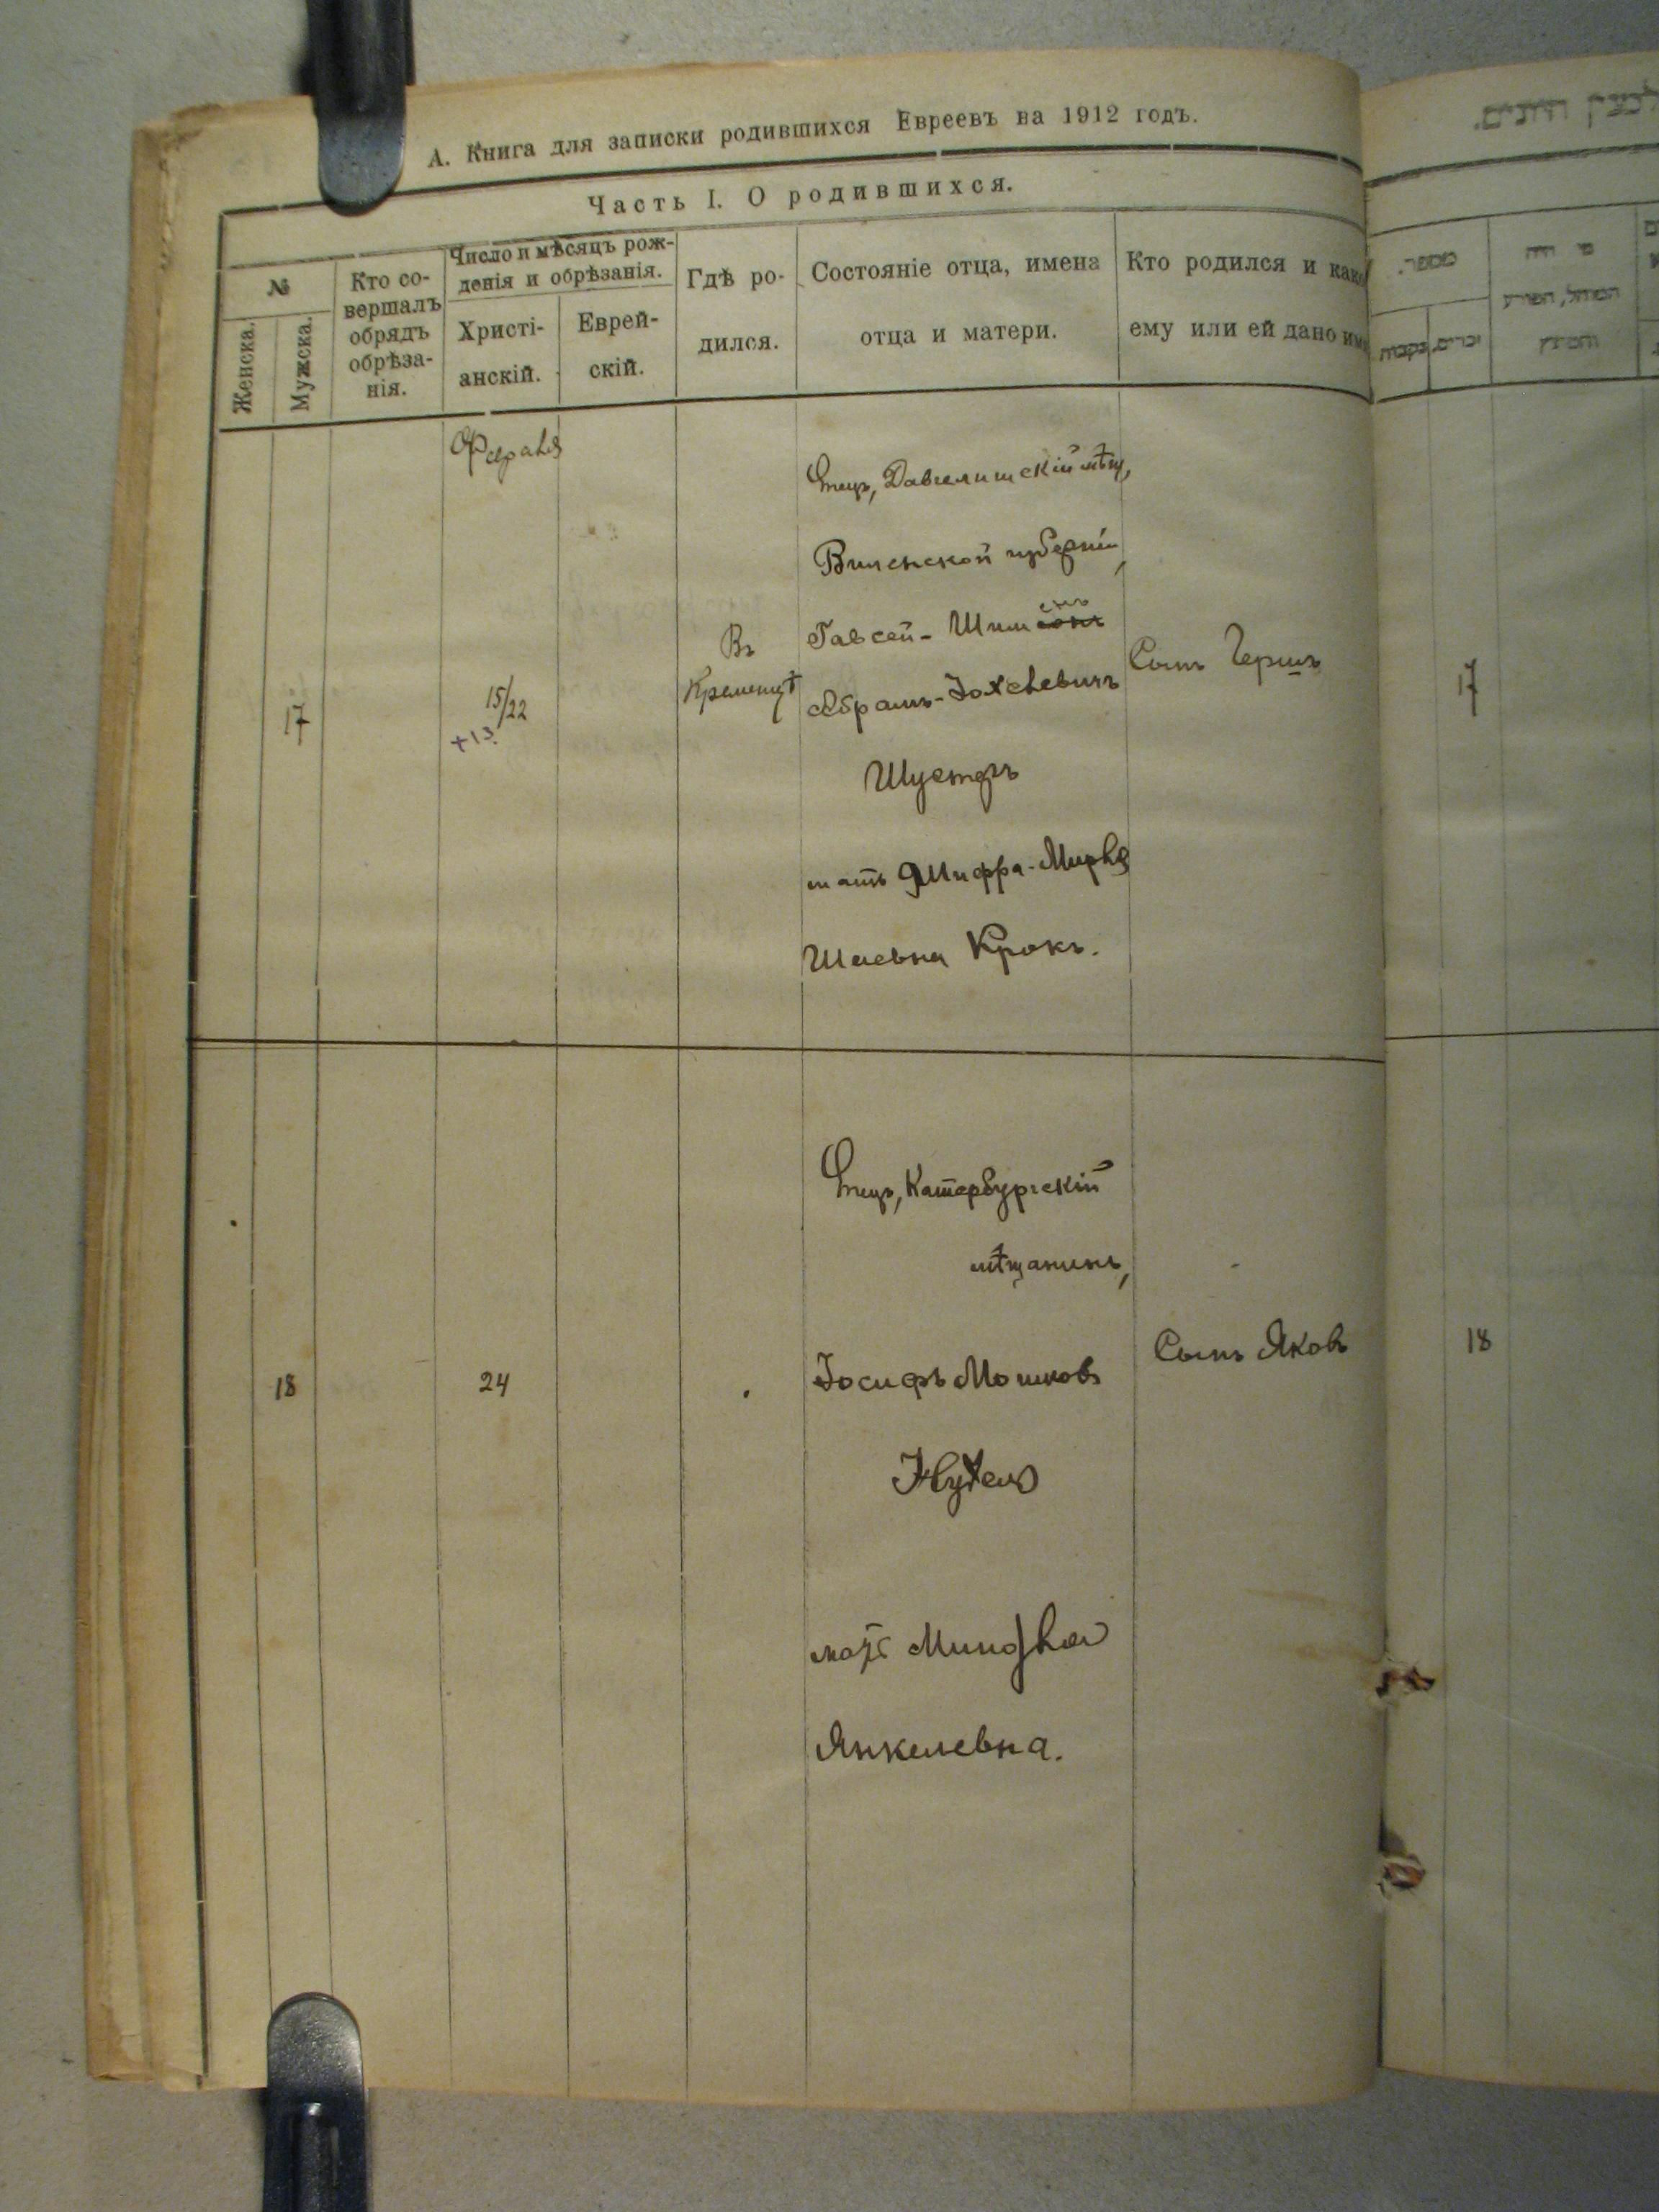 А. Книга для записки родившихся Евреевъ на 1912 годъ.
Часть I. О родившихся.
№
Женска.
Мужска.
Кто со-
вершалъ
обрядъ
обрѣза-
нія.
Число и мѣсяцъ рож-
денія и обрѣзанія.
Христі-
анскій.
Еврей-
скій.
Гдѣ ро-
дился.
Состояніе отца, имена
отца и матери.
Кто родился и како
ему или ей дано имя
Февраля
17
15/22
+13
Въ
Кременцѣ
Отецъ, Давгелишскій мѣщ,
Виленской губерніи,
Гавсей-Шим
енъ
Абрамъ-Іохелевичъ
Шустеръ
мать Шифра-Мирля
Шаевна Крокъ.
Сынъ Гершъ
17
18
24
Отецъ, Катербургскій
мѣщанинъ,
Іосифъ Мошков
мать
Янкелевна.
Сынъ Яковъ
18